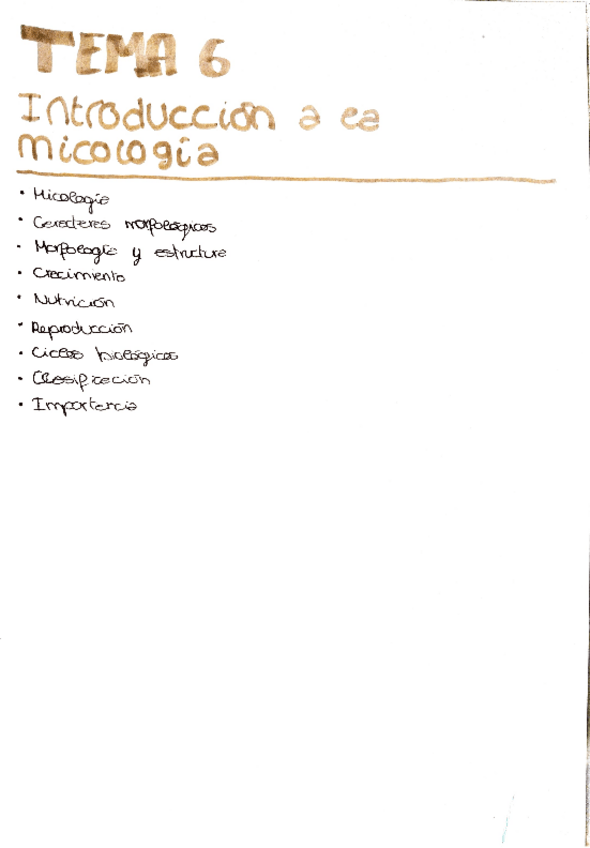 TEMA 6
Introducción a la
micología
• Micología
• Caracteres morfológicos
• Morfología y estructura
• Crecimiento
• Nutrición
• Reproducción
• Ciclos biológicos
• Clasificación
• Importancia